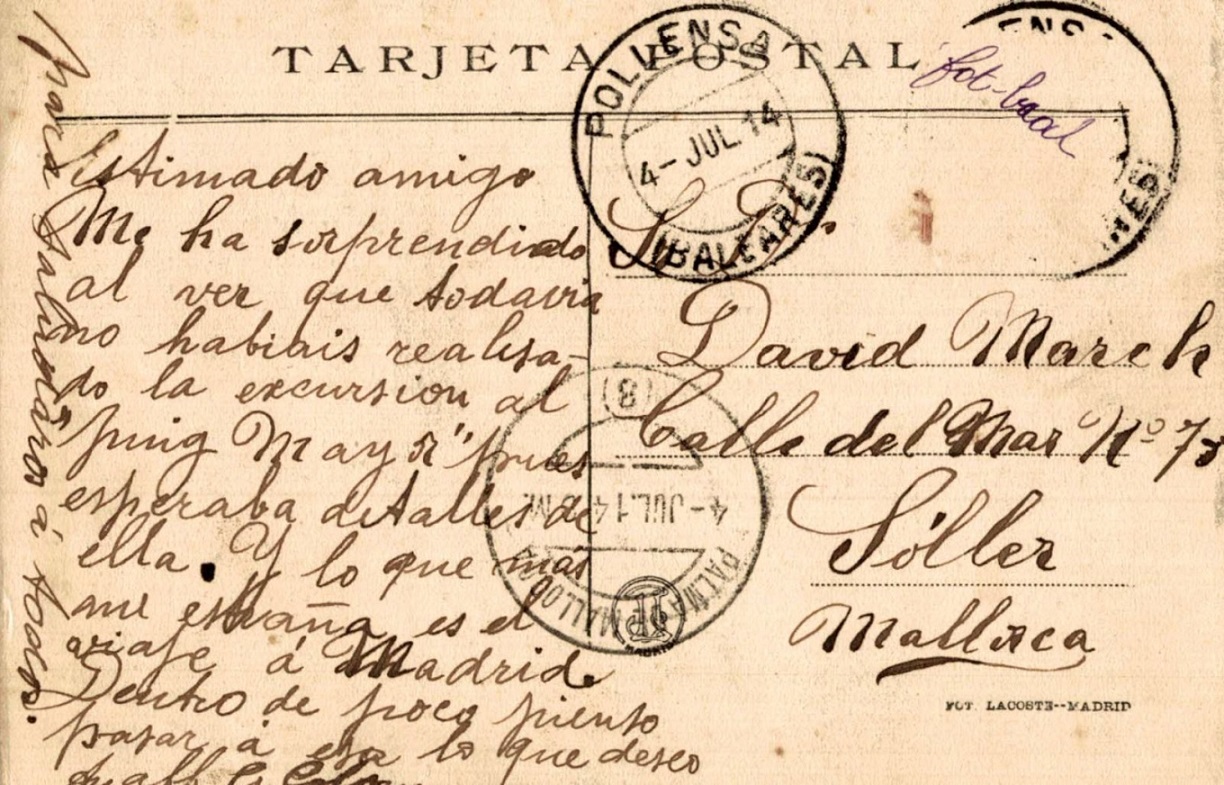 TARJETA POSTAL
fot-bral
POLLENSA
4- JUL.14
(BALEARES)
Estimado amigo
Me ha sorprendido
al ver que todavia
no habiais realisa-
do la excursion al
puig Mayó" pues
esperaba detalles de
ella. Y lo que más
me estraña es el
viaje á Madrid.
Dentro de poco pienso
pasar á esa lo que deseo
para saludáros á todos.
Sr. Dn.
David March
Calle del Mar Nº 73
Sóller
Mallorca
(8)
4-JUL.14
PALMA
MALLORCA
FOT. LACOSTE--MADRID